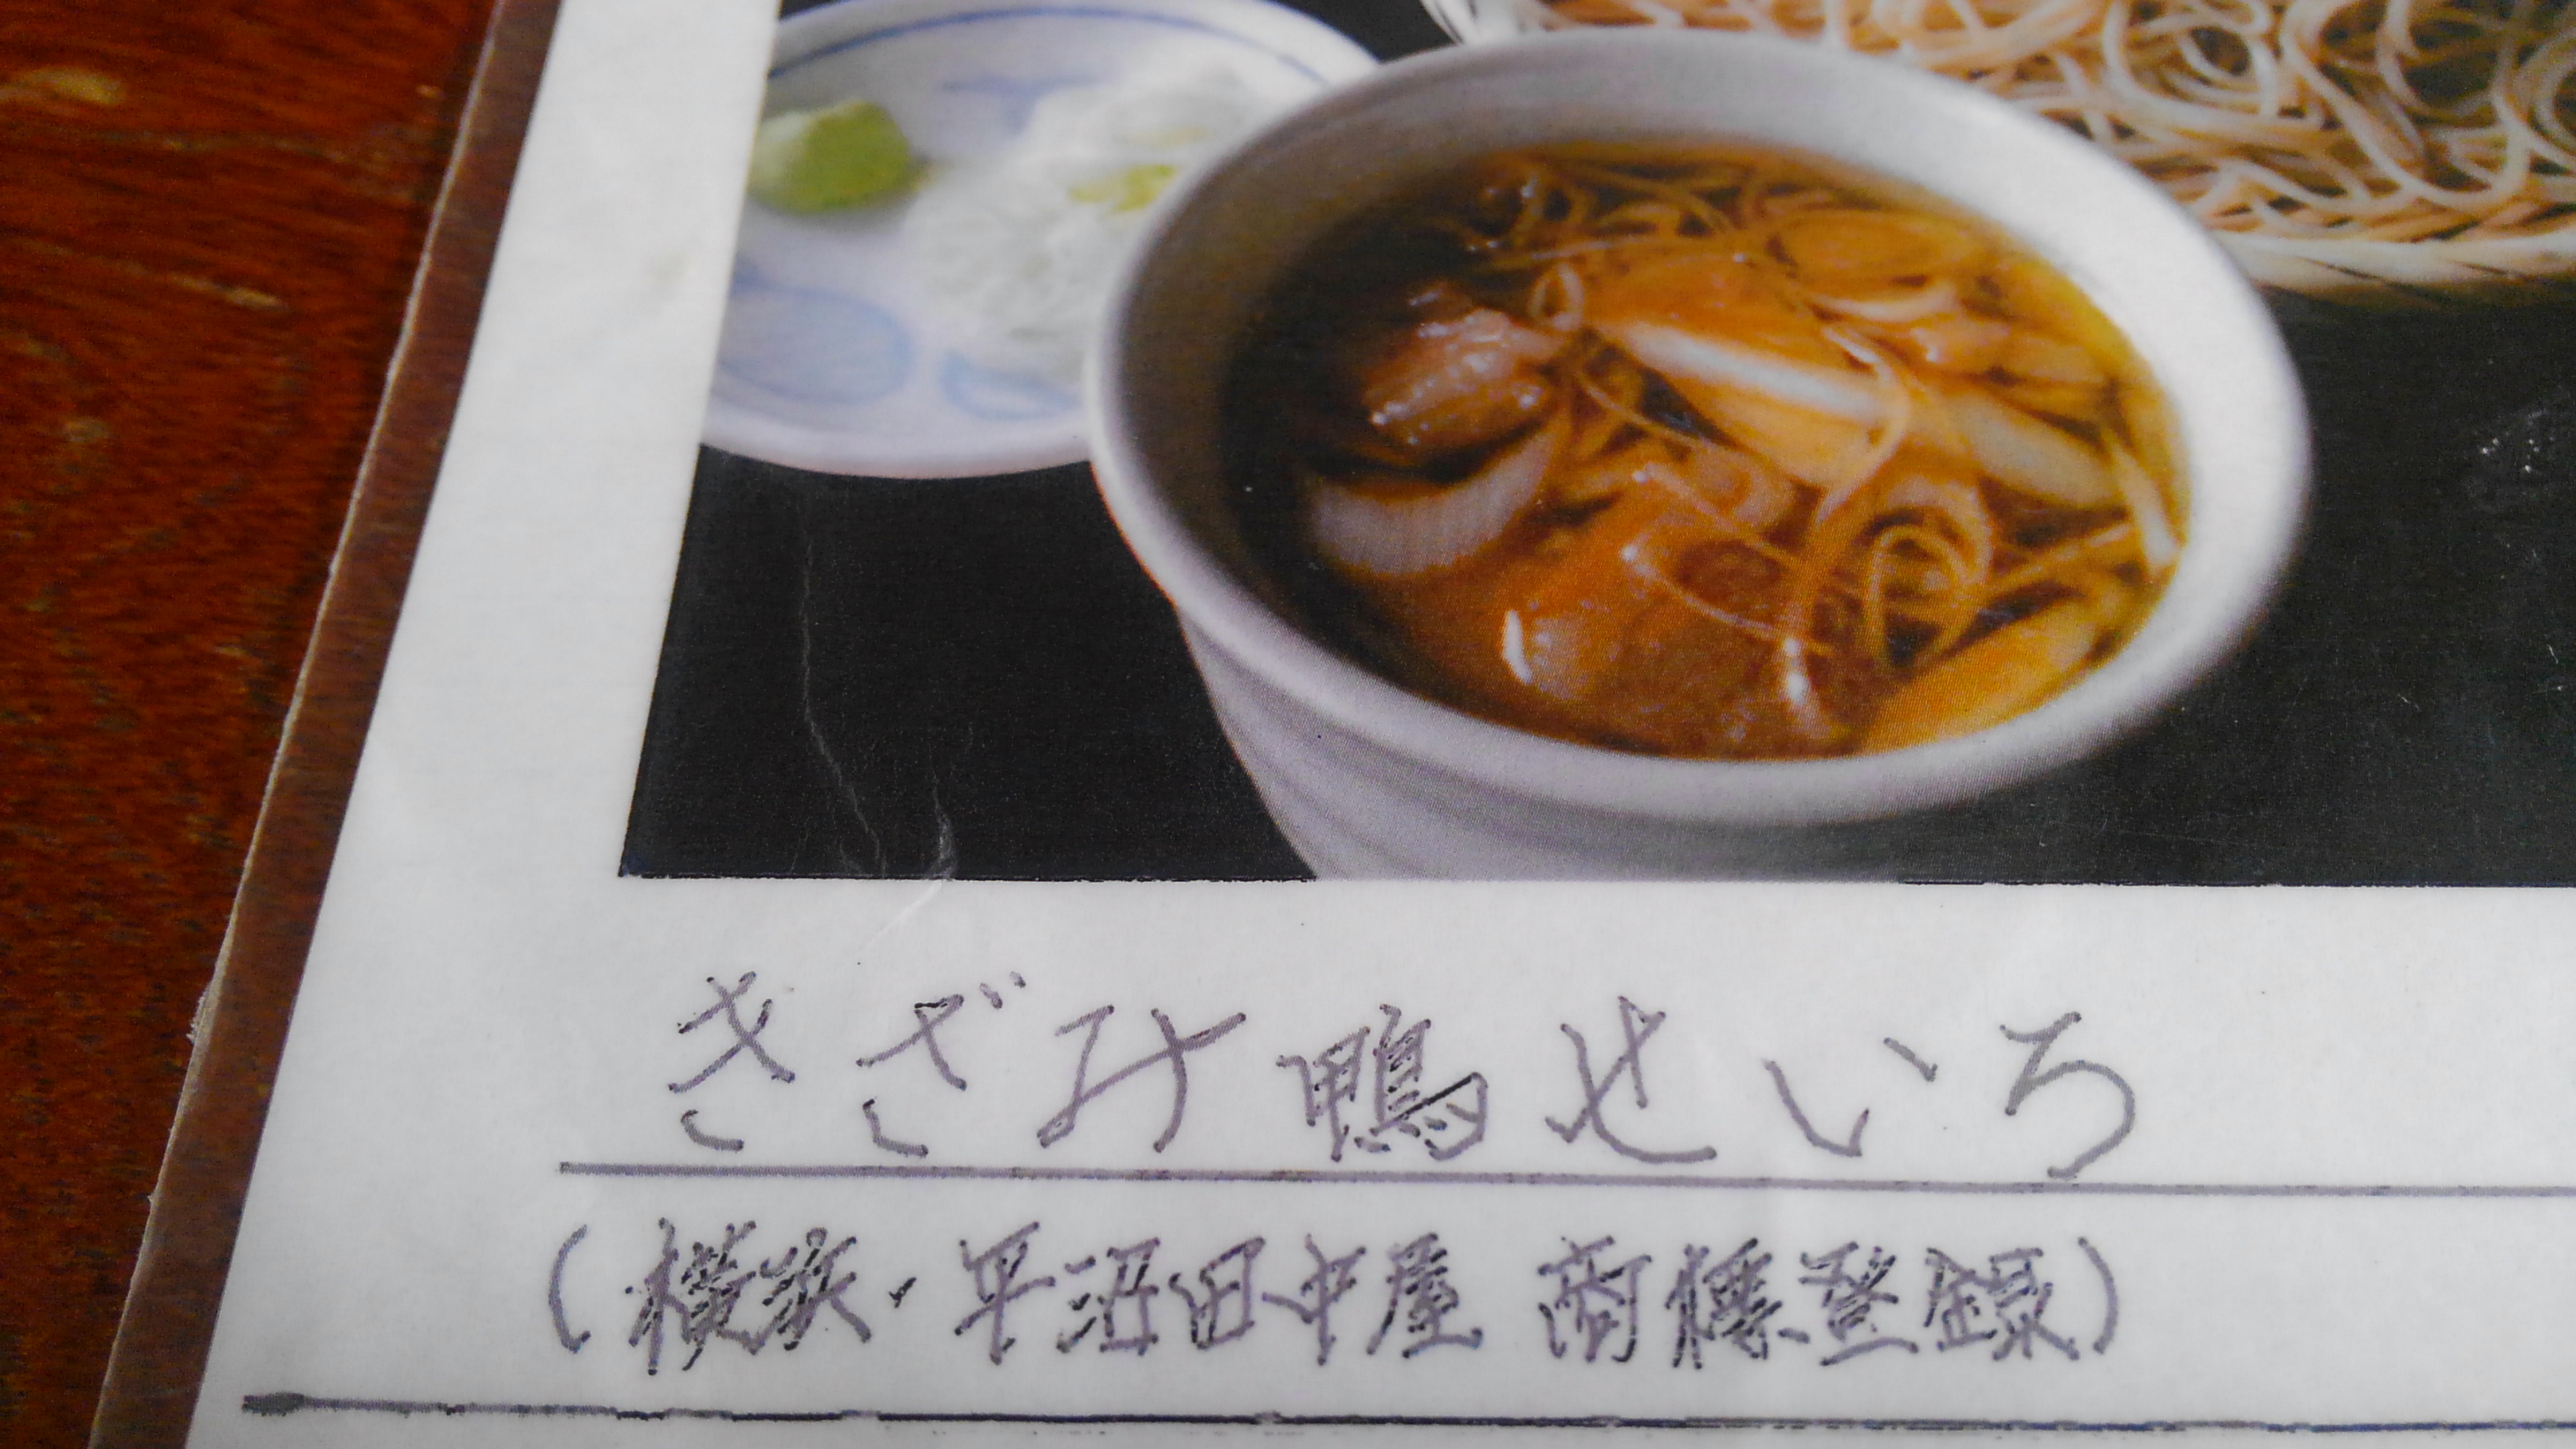 きざみ鴨せいろ
(横浜・平沼田中屋 商標登録)